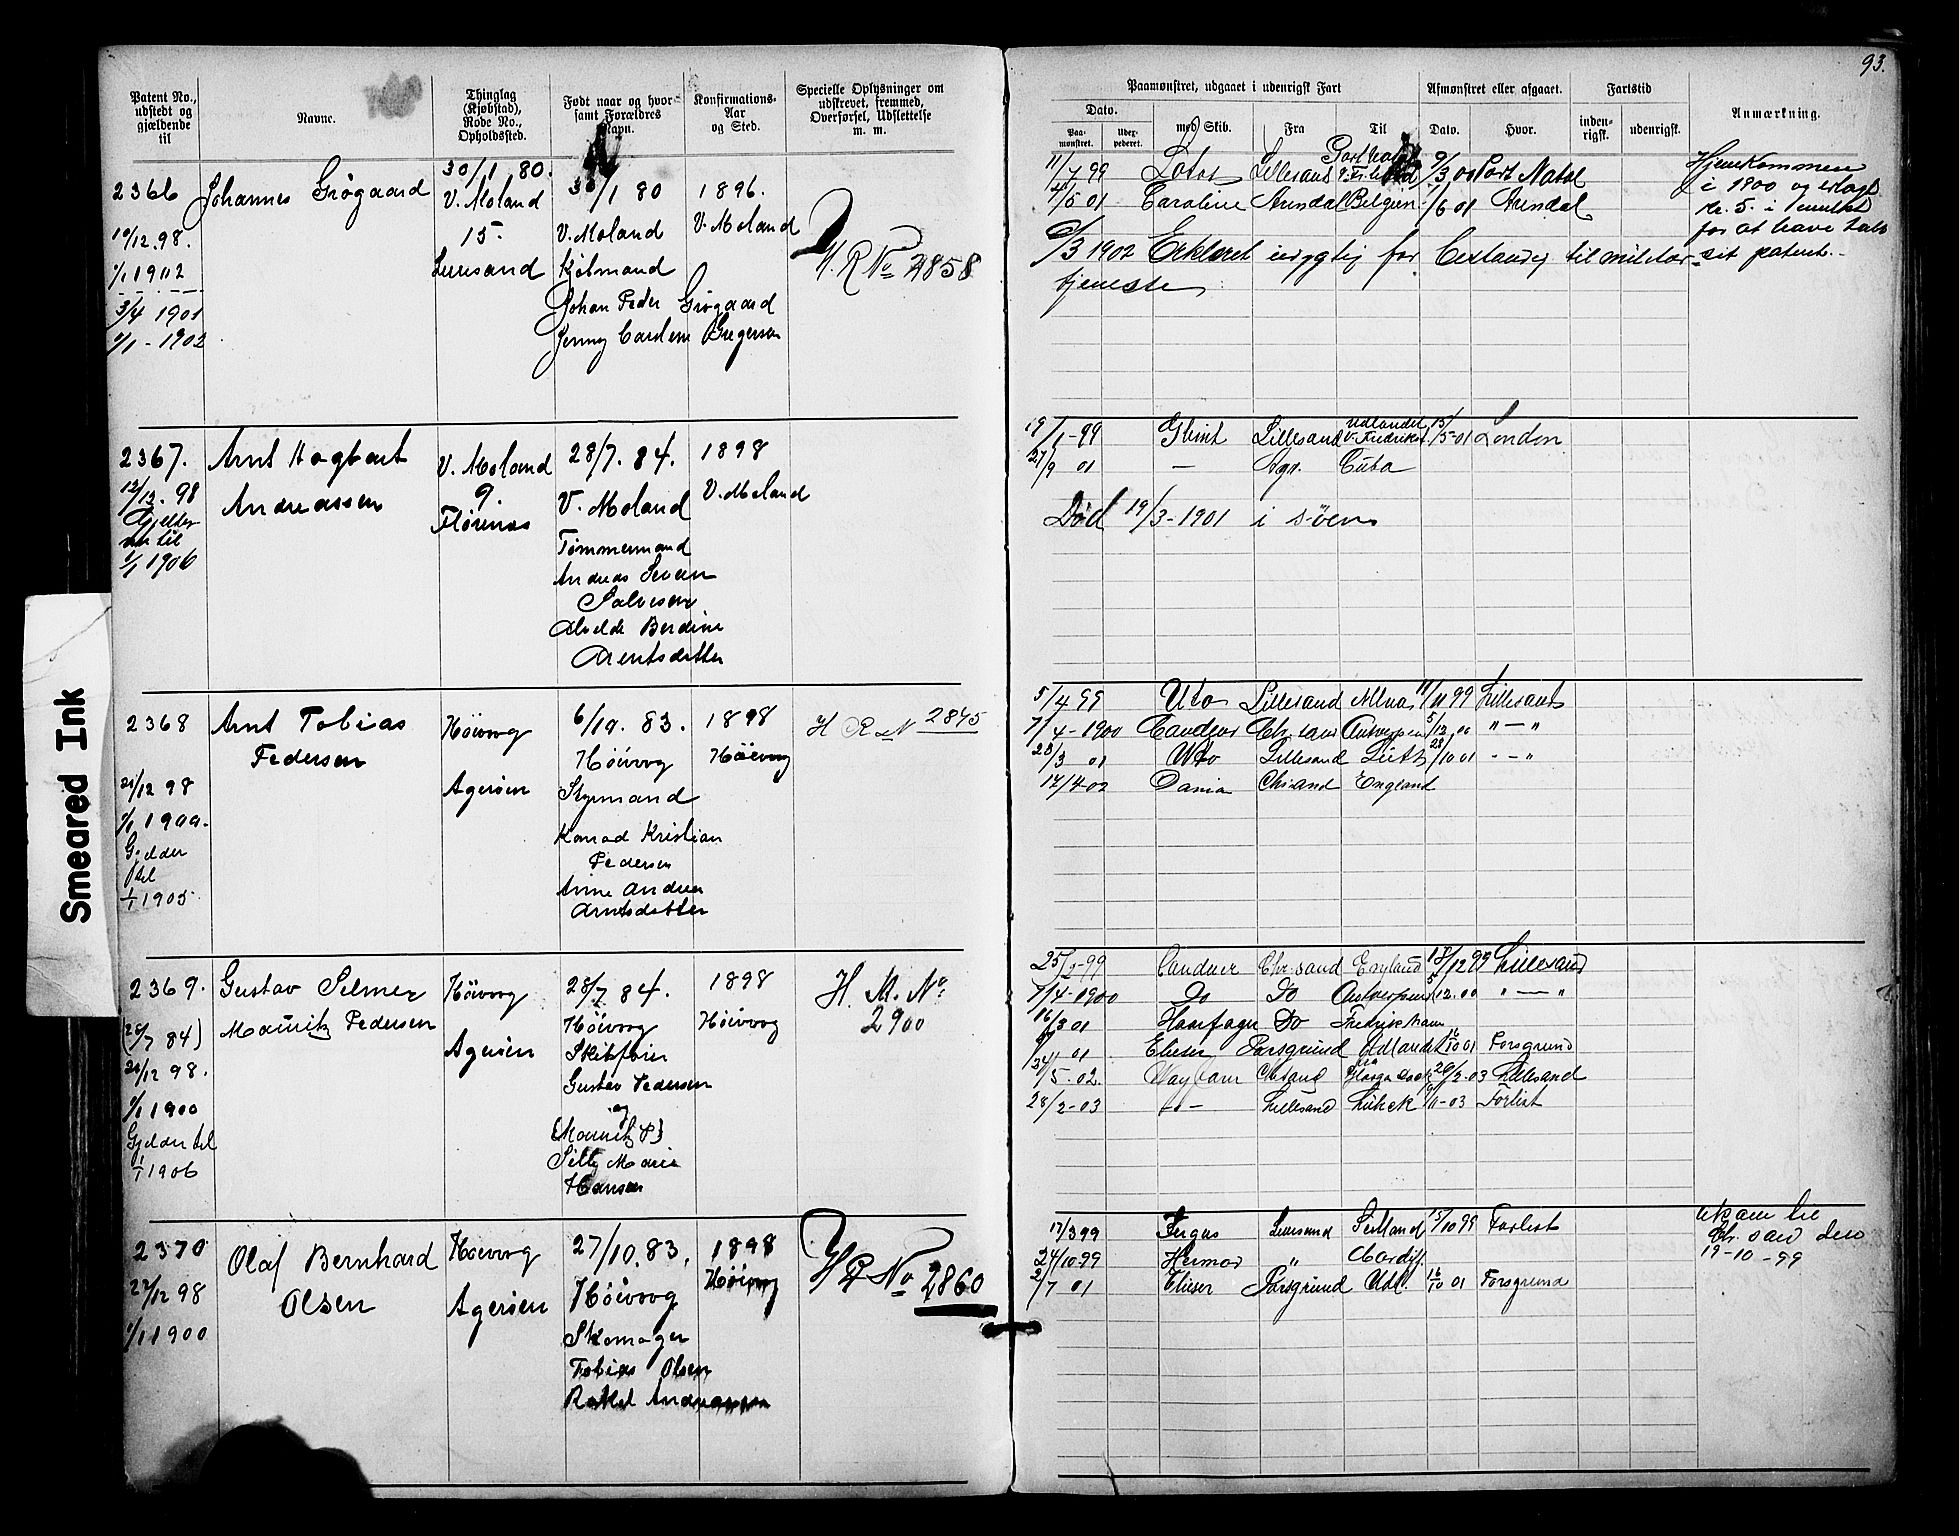 93.
Patent No., udstedt og gjældende til
Navne.
Thinglag (Kjøbstad), Rode No., Opholdssted.
Født naar og hvor samt Forældres Navn.
Konfirmations-Aar og Sted.
Specielle Oplysninger om udskrevet, fremmed, Overførsel, Udslettelse m. m.
Paamønstret, udgaaet i udenrigsk Fart
Dato.
Paamønstret.
Uderpederet.
med Skib.
Fra
Til
Afmønstret eller afgaaet.
Dato.
Hvor.
Fartstid
indenrigsk.
udenrigsk.
Anmærkning.
2366
10/12.98.
1/1 1902
3/4 1901
1/1 - 1902
Johannes Grøgaard
30/1 80.
V. Moland
15.
Lillesand
30/1 80
V. Moland
Kjøbmand
Johan Peder Grøgaard
Jenny Cardene Gregersen
1896.
V. Moland
H. R No 2858
11/7 99 Lillesand 9/3 00 Port Natal
4/5 01 Caroline Arendal Belgien 1/6 01 Arendal
6/3 1902 Erklæret udygtig for bestandig til militær
tjeneste
Hjemkommen
i 1900 og erlagt
kr. 5. i mulkt
for at have tabt
sit patent.
2367.
12/12. 98
Gjelder
nu til
1/1 1906
Arnt Hagbart
Andreassen
V. Moland
9.
Flørenæs
28/7. 84.
V. Moland
Tømmermand
Andreas Severin
Salvesen
Alvilde Berdine
Arentsdatter
1898
V. Moland
19/1-99 Glint Lillesand Udlandet v. Fredrikst. 15/5-01 London
27/9 01 — Agr. Cuba
Død 19/3-1901 i søen
2368
21/12 98
1/1 1900.
Gjelder
til
1/1 1905
Arnt Tobias
Pedersen
Høivog
Agerøen
6/10. 83.
Høivog
Styrmand
Konrad Kristian
Pedersen
Anne Andrea
Arntsdatter
1898
Høivog
H R N 2845
5/4 99 Uto Lillesand Altna 11/11 99 Lillesand
7/4-1900 Candeur Chr. sand Antwerpen 5/12 00 " — "
28/3 01 Uto Lillesand Leith 28/10 01 " — "
14/4-02 Dania Chrsand England
2369.
(28/7 84)
21/12 98.
1/1 1900
Gjelder til
1/1 1906
Gustav Selmer
Mauritz Pedersen
Høivog
Agerøen
28/7 84.
Høivog
Skibsfører
Gustav Pedersen
og
(Mauritz P)
Silly Marie
Hansen
1898
Høivog
H. M. No
2900
25/2-99 Candeur Chr. sand England 18/12 99 Lillesand
7/4-1900 Do Do Antwerpen 5/12.00 " — "
16/3 01 Haarfager Do Fredrikshavn
01 Elieser Porsgrund Udlandet 16/10 01 Porsgrund
/5-02 Chrsand 20/2-03 Lillesand
28/2-03 -"- Lillesand Lübek 9/11-03 Forlist
2370
22/12 98
1/1 1900
Olaf Bernhard
Olsen
Høivog
Agerøen
27/10.83.
Høivog
Skomager
Tobias Olsen
Rakel Andreassen
1898
Høivog
H R No 2860
17/3 99 Fergus Lillesand 15/10 99 Forlist
24/10-99 Hermod " Cardiff.
2/7 01 Elieser Porsgrund Udl. 16/10 01 Porsgrund
Ukom til
Chr. sand den
19-10-99
Smeared Ink